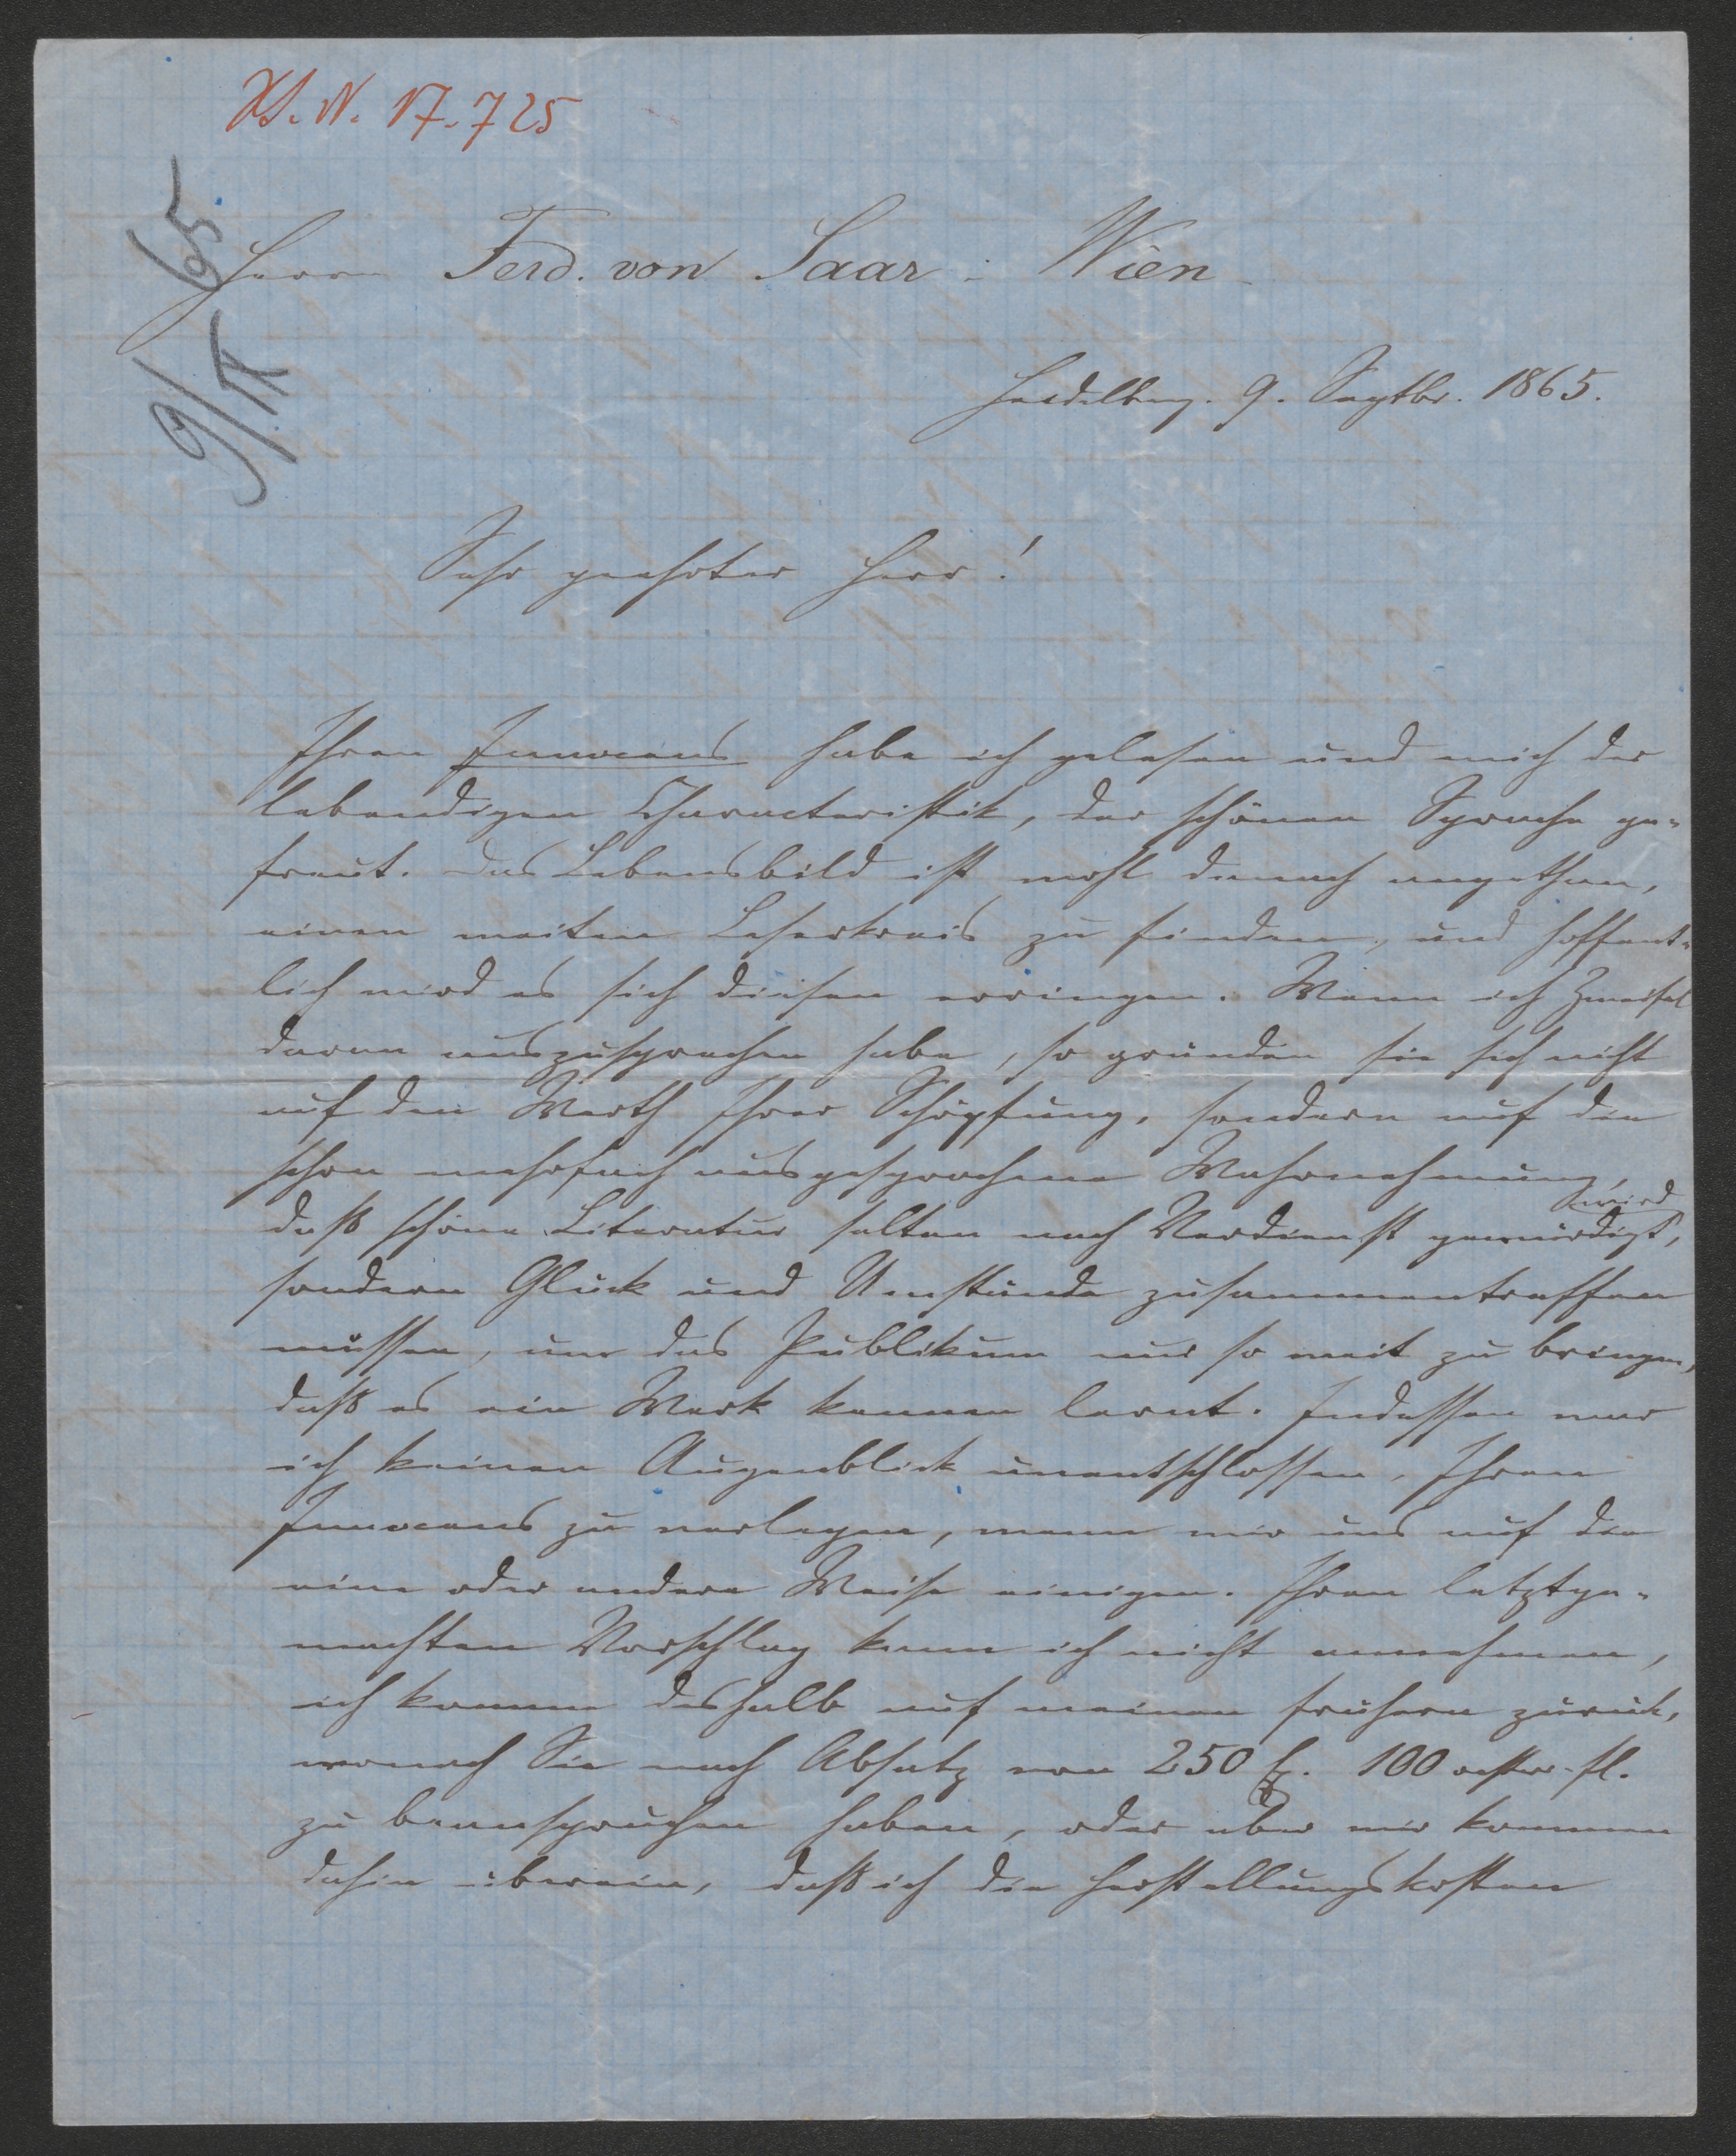 H.I.N. 17.725
9/IX 65
Herrn Ferd. von Saar : Wien
Heidelberg. 9. Septbr. 1865.
Sehr geehrter Herr!
Ihren Innocens habe ich gelesen und mich der
lebendigen Characteristik, der schönen Sprache ge-
freut. Das Lebensbild ist wohl danach angethan,
einen weiten Leserkreis zu finden, und hoffent-
lich wird es sich diesen erringen. Wenn ich Zweifel
daran auszusprechen habe, so gründen sie sich nicht
auf den Werth Ihrer Schöpfung, sondern auf die
schon mehrfach ausgesprochene Wahrnehmung,
daß schöne Literatur selten nach Verdienst gewürdigt wird,
sondern Glück und Umstände zusammentreffen
müssen, um das Publikum nur so weit zu bringen,
daß es ein Werk kennen lernt. Indessen war
ich keinen Augenblick unentschlossen, Ihren
Innocens zu verlegen, wenn wir uns auf die
eine oder andere Weise einigen. Ihren letztge-
machten Vorschlag kann ich nicht annehmen,
ich komme deshalb auf meinen frühern zurück,
wonach Sie nach Absatz von 250 Ex. 100 oestr. fl.
zu beanspruchen haben, oder aber wir kommen
dahin überein, daß ich die Herstellungskosten